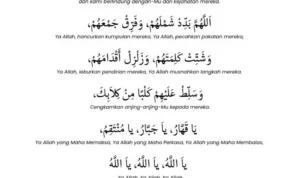 dan kami berlindung dengan-Mu dari kejahatan mereka.
اَللّٰهُمَّ بَدِّدْ شَمْلَهُمْ، وَفَرِّقْ جَمْعَهُمْ،
Ya Allah, hancurkan kumpulan mereka, Ya Allah, pecahkan pakatan mereka,
وَشَتِّتْ كَلِمَتَهُمْ، وَزَلْزِلْ أَقْدَامَهُمْ،
Ya Allah, leburkan pendirian mereka, Ya Allah musnahkan langkah mereka.
وَسَلِّطْ عَلَيْهِمْ كَلْبًا مِنْ كِلَابِكَ،
Cengkamkan anjing-anjing-Mu kepada mereka.
يَا قَهَّارُ، يَا جَبَّارُ، يَا مُنْتَقِمُ،
Ya Allah yang Maha Memaksa, Ya Allah yang Maha Perkasa, Ya Allah yang Maha Membalas,
يَا اَللّٰهُ، يَا اَللّٰهُ، يَا اَللّٰهُ
Ya Allah, Ya Allah, Ya Allah